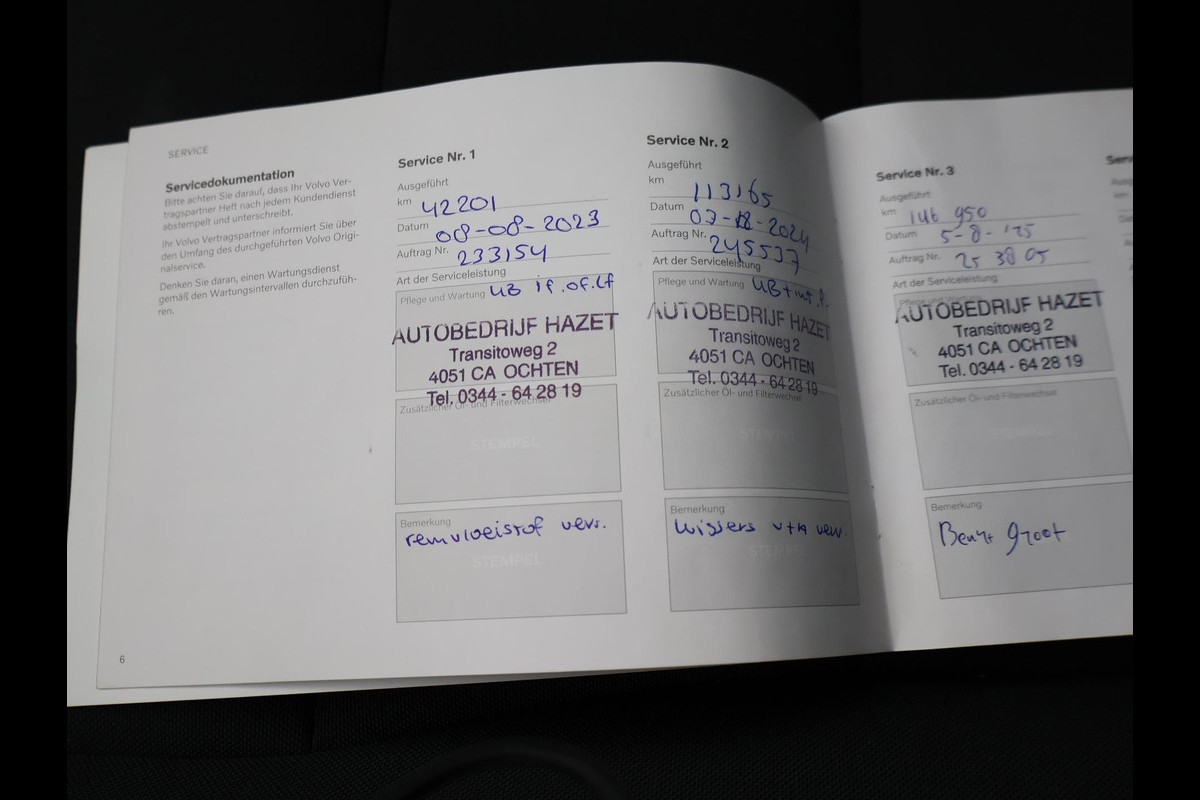 SERVICE
Servicedokumentation
Bitte achten Sie darauf, dass Ihr Volvo Ver-
tragspartner Heft nach jedem Kundendienst
abstempelt und unterschreibt.
Ihr Volvo Vertragspartner informiert Sie über
den Umfang des durchgeführten Volvo Origi-
nalservice.
Denken Sie daran, einen Wartungsdienst
gemäß den Wartungsintervallen durchzufüh-
ren.
6
Service Nr. 1
Ausgeführt
km 42201
Datum 08-08-2023
Auftrag Nr. 233154
Art der Serviceleistung
Pflege und Wartung UB if.of.lf
AUTOBEDRIJF HAZET
Transitoweg 2
4051 CA OCHTEN
Tel. 0344 - 64 28 19
Zusätzlicher Öl- und Filterwechsel
STEMPEL
Bemerkung
remvloeistof vervs.
STEMPEL
Service Nr. 2
Ausgeführt
km 113165
Datum 2024
Auftrag Nr. 245537
Art der Serviceleistung
Pflege und Wartung UB+int.
AUTOBEDRIJF HAZET
Transitoweg 2
4051 CA OCHTEN
Tel. 0344 - 64 28 19
Zusätzlicher Öl- und Filterwechsel
STEMPEL
Bemerkung
wissers v+a verv.
STEMPEL
Service Nr. 3
Ausgeführt
km 146 950
Datum 5-8-'25
Auftrag Nr. 25 38 05
Art der Serviceleistung
Pflege und Wartung
AUTOBEDRIJF HAZET
Transitoweg 2
4051 CA OCHTEN
Tel. 0344 - 64 28 19
Zusätzlicher Öl- und Filterwechsel
Bemerkung
Beurt groot